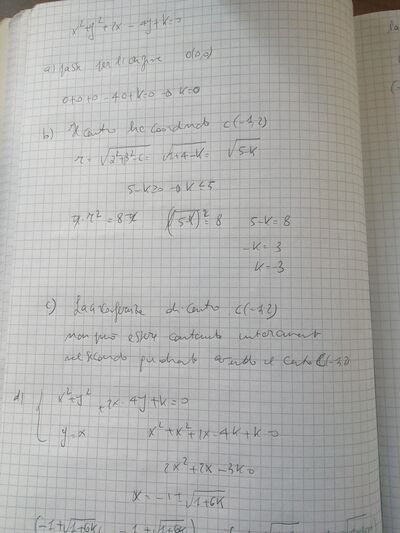 x²+y²+2x-4y+k=0
a) passa per l'origine O(0,0)
0+0+0-4·0+k=0 → k=0
b) Il centro ha coordinate C(-1,2)
r = √(α²+β²-c) = √(1+4-k) = √(5-k)
5-k≥0 → k≤5
π·r²=8π (√(5-k))²=8 5-k=8
-k=3
k=-3
c) La circonferenza di centro C(-1,2)
non può essere contenuta interamente
nel secondo quadrante avendo il centro C(-1,2)
d) { x²+y²+2x-4y+k=0
y=x x²+x²+2x-4x+k=0
2x²+2x-3k=0
x = -1±√(1+6k)
(-1+√(1+6k) -1+√(1+6k))